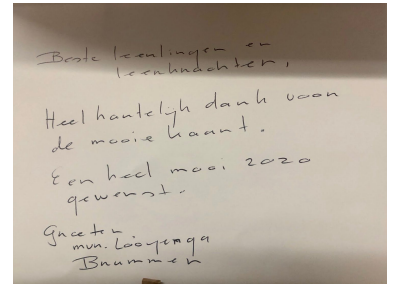 Beste leerlingen en
leerkrachten,
Heel hartelijk dank voor
de mooie kaart.
Een heel mooi 2020
gewenst.
Groeten
mvr. Looyenga
Brummen